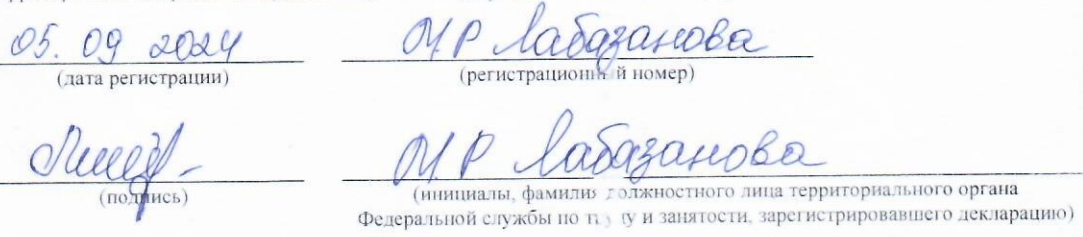 05. 09 2024 М.Р Лабазанова
(дата регистрации) (регистрационный номер)
М.Р Лабазанова
(подпись) (инициалы, фамилия должностного лица территориального органа
Федеральной службы по труду и занятости, зарегистрировавшего декларацию)